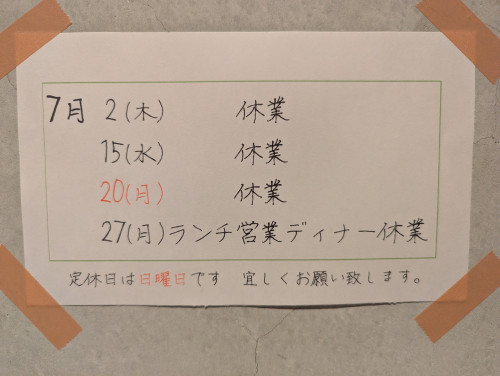 7月 2(木) 休業
15(水) 休業
20(月) 休業
27(月)ランチ営業ディナー休業
定休日は日曜日です 宜しくお願い致します。